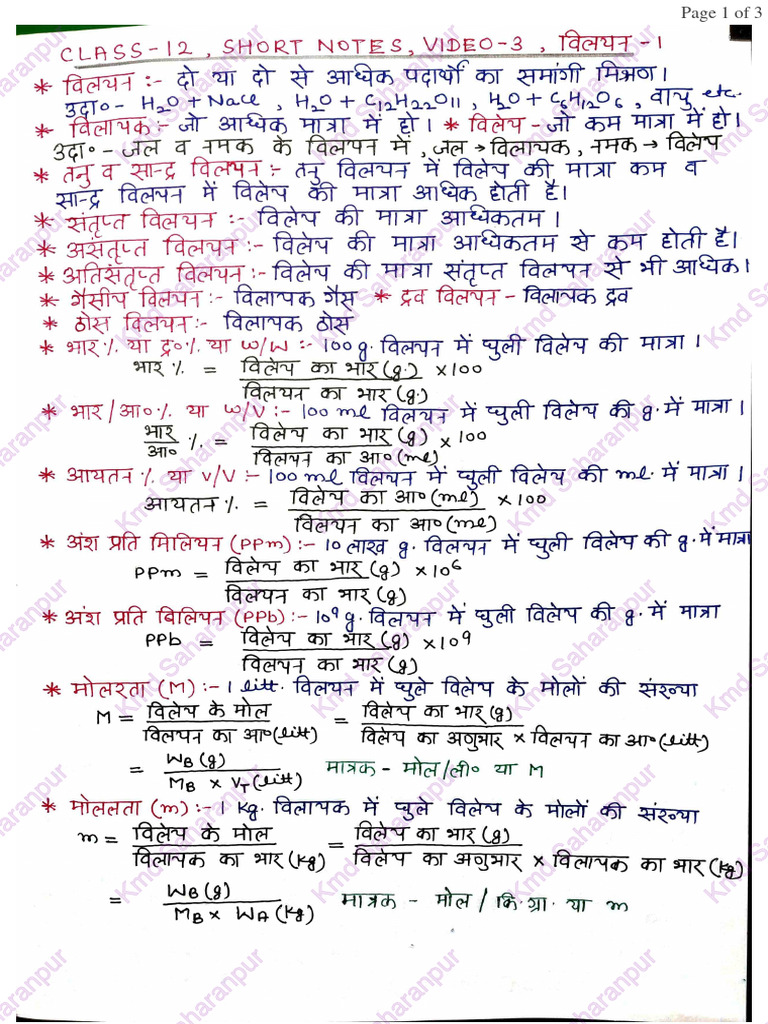 Page 1 of 3
CLASS-12, SHORT NOTES, VIDEO-3, विलयन -1
* विलयन :- दो या दो से अधिक पदार्थों का समांगी मिश्रण।
उदा०- H₂O + NaCl, H₂O + C₁₂H₂₂O₁₁, H₂O + C₆H₁₂O₆, वायु etc.
* विलायक :- जो अधिक मात्रा में हो। * विलेय - जो कम मात्रा में हो।
उदा०- जल व नमक के विलयन में, जल → विलायक, नमक → विलेय
* तनु व सान्द्र विलयन :- तनु विलयन में विलेय की मात्रा कम व
सान्द्र विलयन में विलेय की मात्रा अधिक होती है।
* संतृप्त विलयन :- विलेय की मात्रा अधिकतम।
* असंतृप्त विलयन :- विलेय की मात्रा अधिकतम से कम होती है।
* अतिसंतृप्त विलयन :- विलेय की मात्रा संतृप्त विलयन से भी अधिक।
* गैसीय विलयन :- विलायक गैस * द्रव विलयन - विलायक द्रव
* ठोस विलयन :- विलायक ठोस
* भार % या द्र० % या w/W :- 100 g. विलयन में घुली विलेय की मात्रा।
भार % = विलेय का भार (g.) / विलयन का भार (g.) × 100
* भार/आ० % या w/V :- 100 ml विलयन में घुली विलेय की g. में मात्रा।
भार/आ० % = विलेय का भार (g) / विलयन का आ० (ml) × 100
* आयतन % या v/V :- 100 ml विलयन में घुली विलेय की ml. में मात्रा।
आयतन % = विलेय का आ० (ml) / विलयन का आ० (ml) × 100
* अंश प्रति मिलियन (PPm) :- 10 लाख g. विलयन में घुली विलेय की g. में मात्रा
PPm = विलेय का भार (g) / विलयन का भार (g) × 10⁶
* अंश प्रति बिलियन (PPb) :- 10⁹ g. विलयन में घुली विलेय की g. में मात्रा
PPb = विलेय का भार (g) / विलयन का भार (g) × 10⁹
* मोलरता (M) :- 1 litt. विलयन में घुले विलेय के मोलों की संख्या
M = विलेय के मोल / विलयन का आ० (litt) = विलेय का भार (g) / विलेय का अणुभार × विलयन का आ० (litt)
= W_B (g) / M_B × V_T (litt) मात्रक - मोल/ली० या M
* मोललता (m) :- 1 Kg. विलायक में घुले विलेय के मोलों की संख्या
m = विलेय के मोल / विलायक का भार (Kg) = विलेय का भार (g) / विलेय का अणुभार × विलायक का भार (Kg)
= W_B (g) / M_B × W_A (Kg) मात्रक - मोल / कि.ग्रा. या m
Kmd Saharanpur